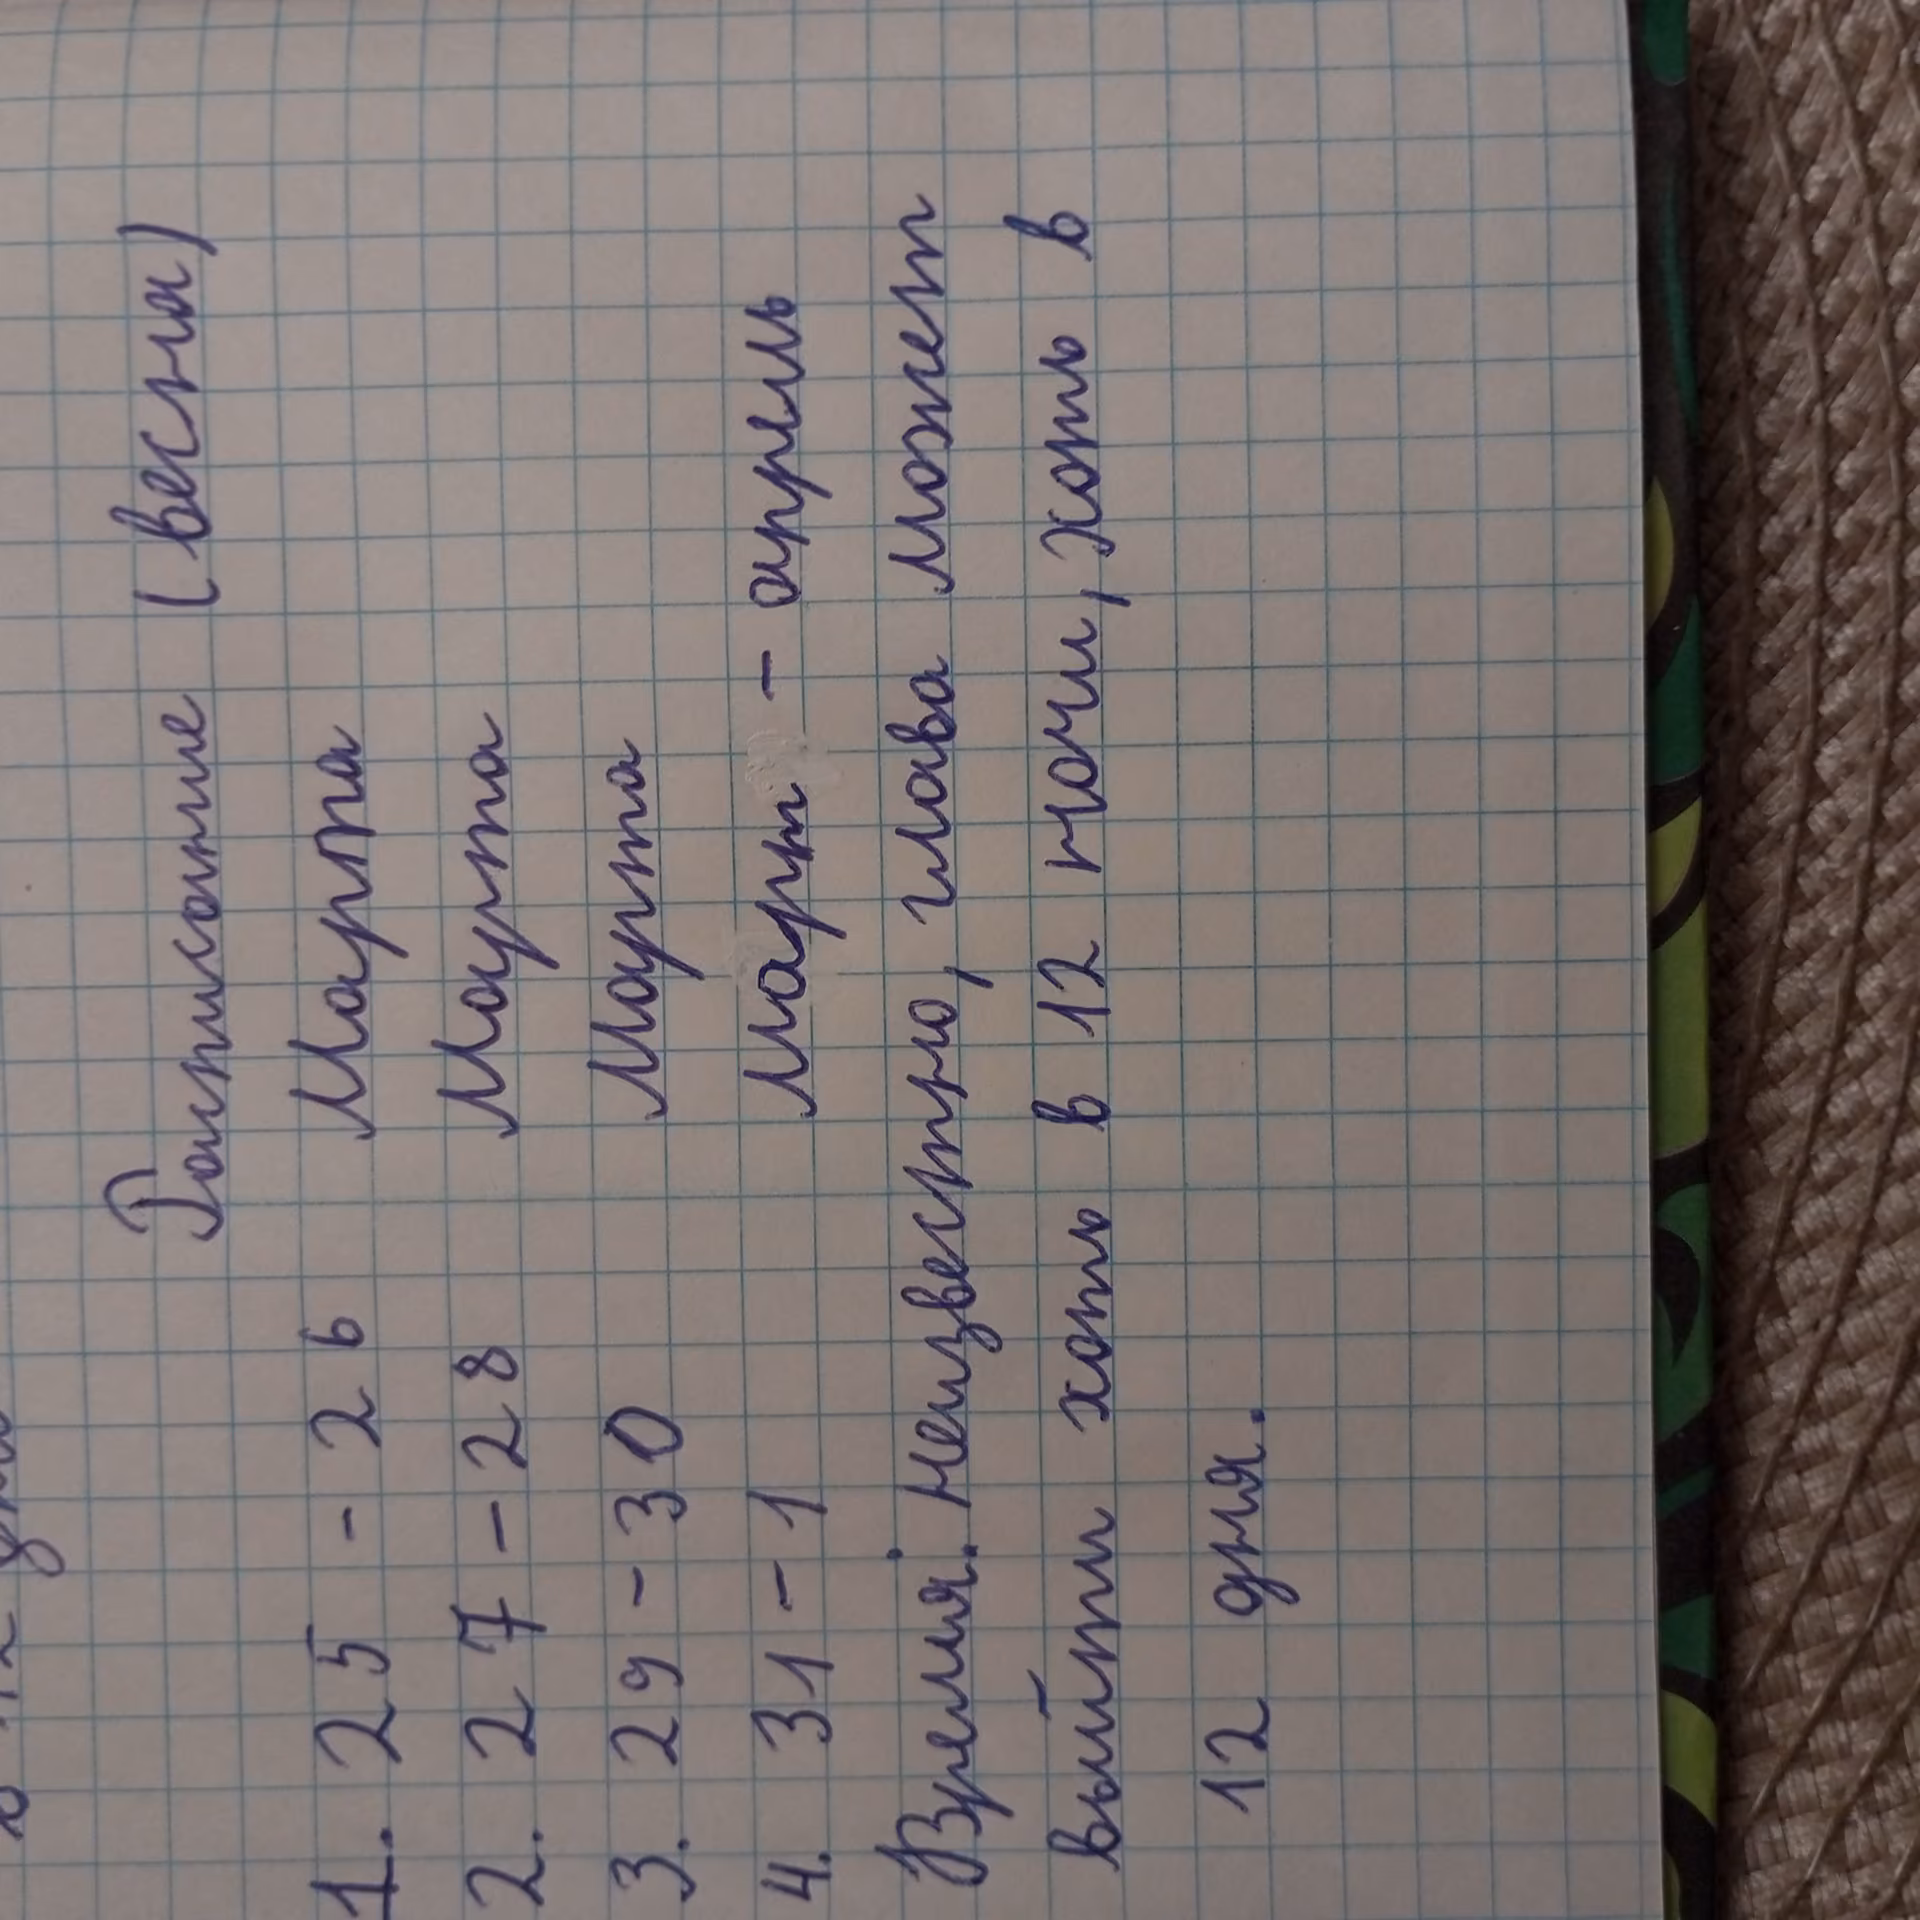 Расписание (весна)
1. 25 - 26 Марта
2. 27 - 28 Марта
3. 29 - 30 Марта
4. 31 - 1 Март - апрель
Время: неизвестно, глава может
выйти хоть в 12 ночи, хоть в
12 дня.